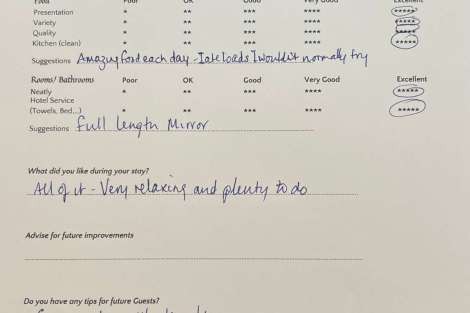 Food Poor OK Good Very Good Excellent
Presentation * ** *** **** *****
Variety * ** *** **** *****
Quality * ** *** **** *****
Kitchen (clean) * ** *** **** *****
Suggestions Amazing food each day - I ate loads I wouldn't normally try
Rooms/ Bathrooms Poor OK Good Very Good Excellent
Neatly * ** *** **** *****
Hotel Service
(Towels, Bed,..) * ** *** **** *****
Suggestions Full length Mirror
What did you like during your stay?
All of it - Very relaxing and plenty to do
Advise for future improvements
Do you have any tips for future Guests?